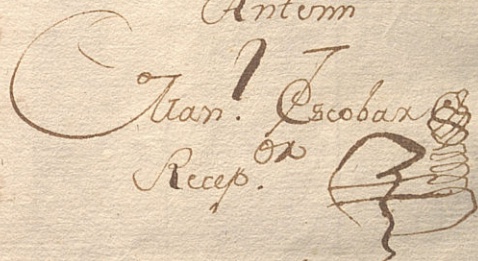 Antemi
Man.l Escobar
Recep.or